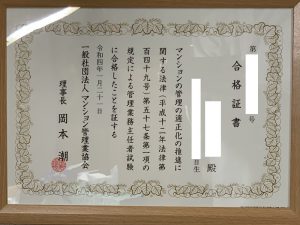 第 号
合格証書
生
殿
マンションの管理の適正化の推進に
関する法律（平成十二年法律第
百四十九号）第五十七条第一項の
規定による管理業務主任者試験
に合格したことを証する
令和四年一月二十一日
一般社団法人 マンション管理業協会
理事長 岡本 潮